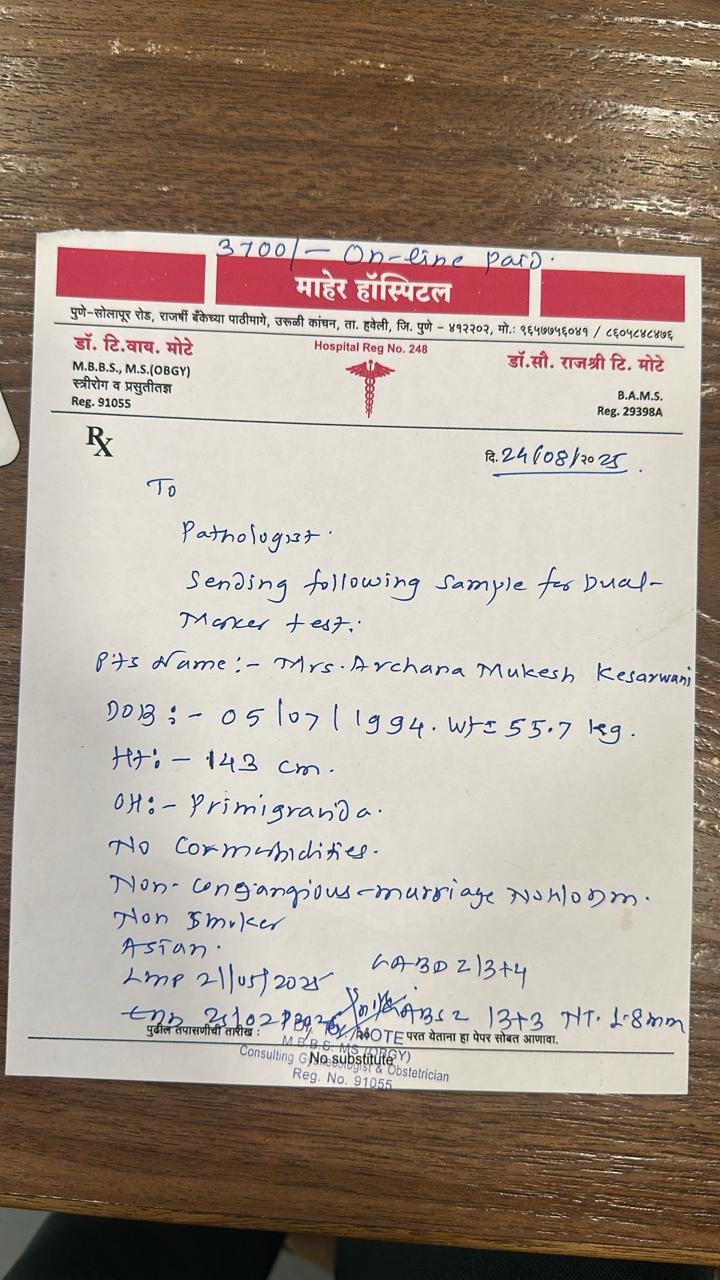 3700/- On-line paid.
माहेर हॉस्पिटल
पुणे-सोलापूर रोड, राजर्षी बँकेच्या पाठीमागे, उरूळी कांचन, ता. हवेली, जि. पुणे - ४१२२०२, मो.: ९६५७७५६०४१ / ८६०५४८४८७६
डॉ. टि.वाय. मोटे
M.B.B.S., M.S.(OBGY)
स्त्रीरोग व प्रसुतीतज्ञ
Reg. 91055
Hospital Reg No. 248
डॉ.सौ. राजश्री टि. मोटे
B.A.M.S.
Reg. 29398A
Rx
दि. 24/08/२०25.
To
Pathologist.
Sending following sample for Dual-
Marker test.
Pts Name:- Mrs. Archana Mukesh Kesarwani
DOB:- 05/07/1994. Wt= 55.7 kg.
Ht:- 143 cm.
OH:- Primigravida.
No Cormorbidities.
Non-Congangious-murriage
Non Smoker
Asian.
LMP 21/05/2025
13+4
13+3 NT. 1.8mm
पुढील तपासणीची तारीख : परत येताना हा पेपर सोबत आणावा.
MOTE
M.B.B.S. MS (OBGY)
No substitute
Consulting Gynecologist & Obstetrician
Reg. No. 91055